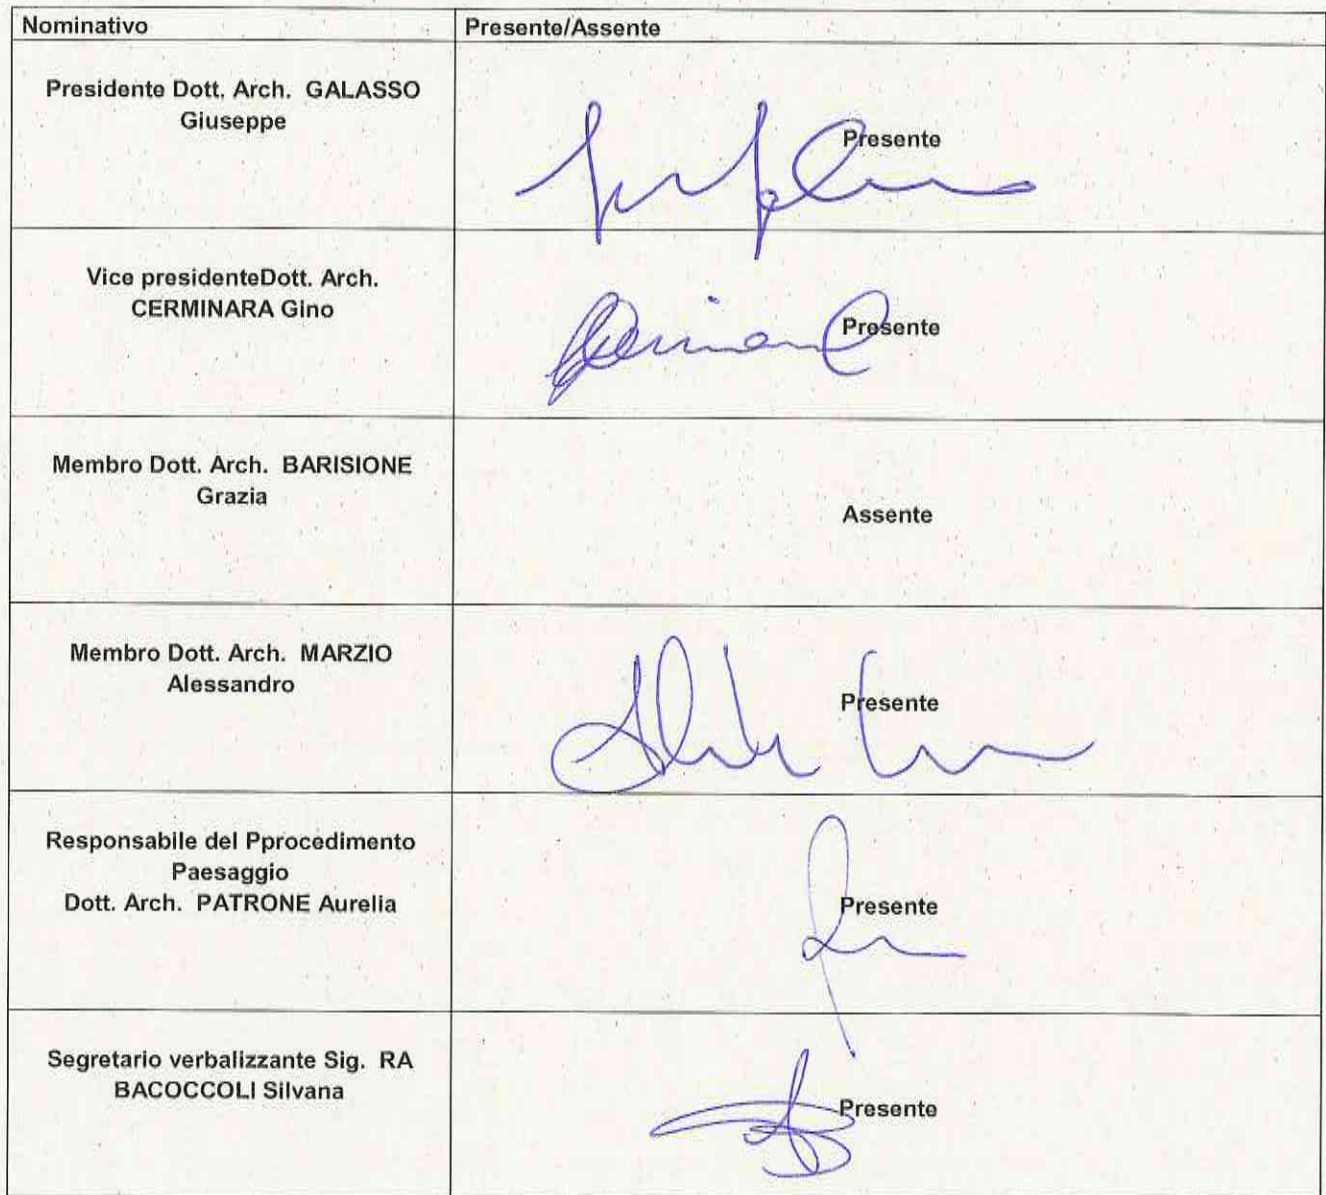 Nominativo Presente/Assente
Presidente Dott. Arch. GALASSO
Giuseppe
Presente
Vice presidenteDott. Arch.
CERMINARA Gino
Presente
Membro Dott. Arch. BARISIONE
Grazia
Assente
Membro Dott. Arch. MARZIO
Alessandro
Presente
Responsabile del Pprocedimento
Paesaggio
Dott. Arch. PATRONE Aurelia
Presente
Segretario verbalizzante Sig. RA
BACOCCOLI Silvana
Presente